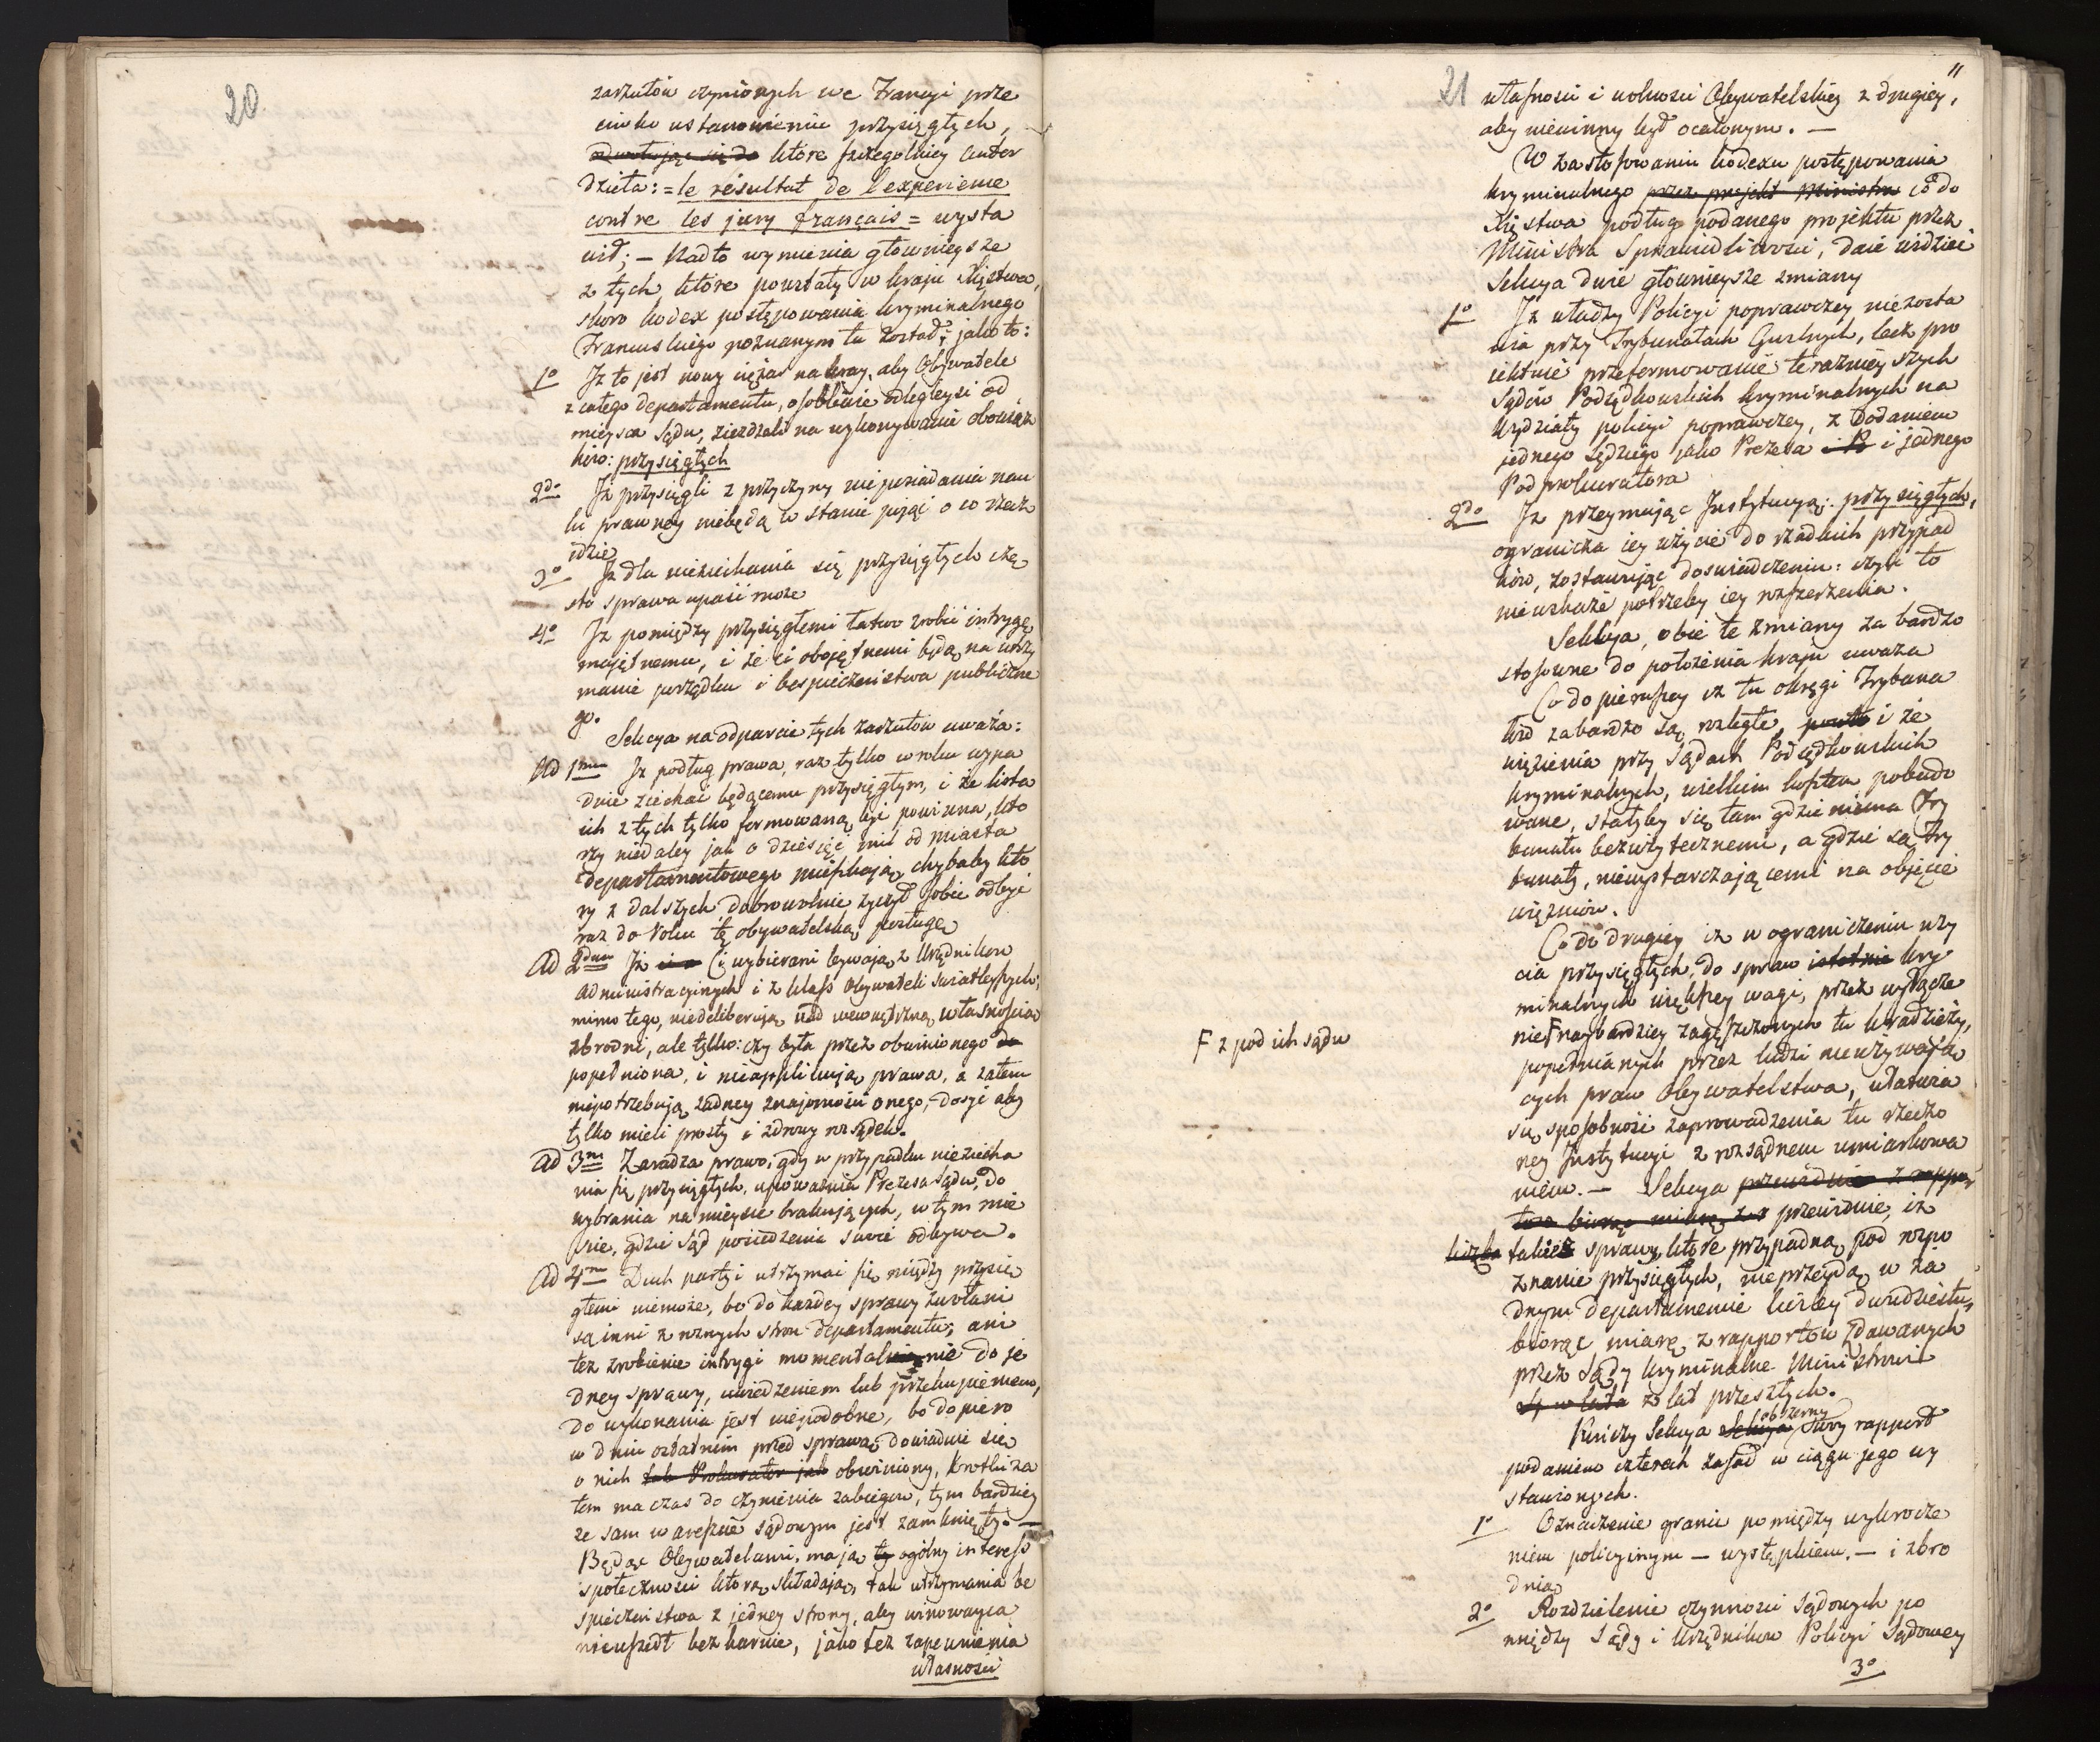 20
zarzutów czynionych we Francyi prze
ciwko ustanowieniu przysięgłych,
odwołując się do które szczegolniey Autor
dzieła: = le résultat de l'experience
contre les jury français = wysta
wił; – Nadto wymienia głownieysze
z tych, które powstały w kraju Xięstwa,
skoro kodex postępowania kryminalnego
Francuskiego poznanym tu został; jako to:
1o Iż to jest nowy ciężar na kray, aby Obywatele
z całego departamentu, osobliwie odlegleysi od
mieysca Sądu, zieżdzali na wykonywanie obowiąz
ków: przysięgłych
2do Iż przysięgli z przyczyny nieposiadania nau
ki prawney niebędą w stanie pojąć o co rzecz
idzie
3o Iż dla nieziechania się przysięgłych czę
sto sprawa upaść może
4o Iż pomiędzy przysięgłemi łatwo zrobić intrygę
majętnemu, i że ci obojętnemi będą na utrzy
manie porządku i bespieczeństwa publiczne
go.
Sekcya na odparcie tych zarzutów uważa:
Ad 1mum Iż podług prawa, raz tylko w roku wypa
dnie ziechać będącemu przysięgłym, i że lista
ich z tych tylko formowaną być powinna, któ
rzy niedaley jak o dziesięć mil od miasta
departamentowego mieszkają, chybaby któ
ry z dalszych dobrowolnie życzył sobie odbyć
raz do roku tę obywatelską posługę
Ad 2dum Iż Ci wybierani bywają z Urzędników
administracyinych i z klass Obywateli światleyszych;
mimo tego, niedeliberują nad wewnętrzną własnością
zbrodni, ale tylko: czy była przez obwinionego do
popełniona, i nieapplikują prawa, a zatem
niepotrzebują żadney znajomości onego, dosyć aby
tylko mieli prosty i zdrowy rozsądek.
Ad 3m Zaradza prawo, gdy w przypadku niezjecha
nia się przysięgłych, upoważnia Prezesa Sądu, do
wybrania na mieysce brakujących, w tym mie
ście, gdzie Sąd posiedzenia swoie odbywa.
Ad 4m Duch partyi utrzymać się między przysię
głemi niemoże, bo do każdey sprawy zwołani
są inni z roznych stron departamentu; ani
też zrobienie intrygi momentalnie do je
dney sprawy, uwiedzeniem lub przekupieniem,
do wykonania jest niepodobne, bo dopiero
w dniu ostatnim przed sprawą dowiaduie się
o nich tak Prokurator jak obwiniony, krotki za
tem ma czas do czynienia zabiegów, tym bardziey
że sam w areszcie sądowym jest zamknięty. –
Będąc Obywatelami, mają ty ogólny interess
społeczności którą składają, tak utrzymania be
spieczeństwa z jedney strony, aby winowayca
nieuszedł bezkarnie, jako też zapewnienia
własności
11
21
własności i wolności Obywatelskiey z drugiey,
aby niewinny był ocalonym. –
W zastosowaniu kodexu postępowania
kryminalnego przez projekt Ministra co do
Xięstwa podług podanego projektu przez
Ministra Sprawiedliwości, daie widzieć
Sekcya dwie głownieysze zmiany
1o Iż władzy Policyi poprawczey niezosta
wia przy Trybunałach Cywilnych, lecz pro
iektuie przeformowanie teraznieyszych
Sądów Podsędkowskich kryminalnych na
wydziały policyi poprawczey, z dodaniem
jednego Sędziego jako Prezesa i P i jednego
Podprokuratora
2do Iż przeymując Instytucyą: przysięgłych,
ogranicza iey użycie do rzadkich przypad
ków, zostawując doswiadczeniu: czyli to
nieukaże potrzeby iey rozszerzenia.
Sekcya, obie te zmiany za bardzo
stosowne do położenia kraju uważa
Co do pierwszey iż tu okręgi Trybuna
łów zabardzo są rozległe, i że
więzienia przy Sądach Podsędkowskich
kryminalnych, wielkim kosztem pobudo
wane, stałyby się tam gdzie niema Try
bunału bezużytecznemi, a gdzie są Try
bunały, niewystarczającemi na objęcie
więzniów.
Co do drugiey iż w ograniczeniu uży
cia przysięgłych, do spraw istotnie kry
minalnych większey wagi, przez wyłącze
nie F naybardziey zagęszczonych tu kradzieży,
F z pod ich sądu
popełnianych przez ludzi nieużywają
cych praw Obywatelstwa, ułatwia
się sposobność zaprowadzenia tu rzeczo
ney Instytucyi z rozsądnem umiarkowa
niem. – Sekcya przewiduie z rappor
tów biorąc miarę z przewiduie, iż
liczba takież sprawy, które przypadną pod rozpo
znanie przysięgłych, nieprzejdą w ża
dnym departamencie liczby dwudziestu,
biorąc miarę z rapportów zdawanych
przez Sądy kryminalne Ministrowi
z lat przeszłych.
Kończy Sekcya Sekcya obszerny swoy rapport
podaniem czterech zasad w ciągu jego wy
stawionych.
1o Oznaczenie granic pomiędzy wykrocze
niem policyinym – występkiem. – i zbro
dnią
2o Rozdzielenie czynności Sądowych po
między Sądy i Urzędników Policyi Sądowey
3o